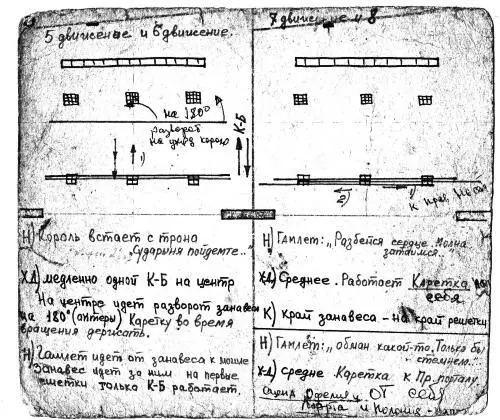 5 движение и 6 движение.
на 180°
разворот
на уход королю
1)
К-Б
Н) Король встает с трона
„Сударыня пойдемте..“
ХД) медленно одной К-Б на центр
На центре идет разворот занавеса
на 180° (актеры) Каретку во время
вращения держать.
Н) Гамлет идет от занавеса к
Занавес идет за ним на первые
решетки только К-Б работает.
7 движение и 8
2)
1)
К прав.
Н) Гамлет: „Разбейся сердце. Молча
затаимся.
ХД) Среднее. Работает Каретка на
себя
К) край занавеса - на край решетки
Н) Гамлет: „обман какой-то. Только бы
стемнело..“
ХД) Средне Каретка к Пр. порталу
Сцена Офелия ОТ себя